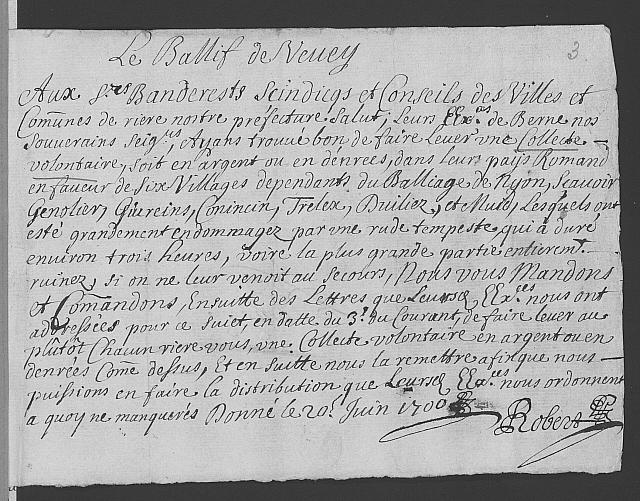 Le Ballif de Vevey
3
Aux Srs Banderests Scindicqs et Conseils des Villes et
Comũnes de riere nostre prefecture Salut, Leurs EEx.ces de Berne nos
Souverains Seig.rs, Ayans trouué bon de faire Leuer vne Collecte
volontaire, soit en argent ou en denrees, dans leurs païs Romand
en faueur de six Villages dependants du Balliage de Nyon, Scauoir
Genollier, Giureins, Coincin, Trelex, Duiliez, et Muid, Lesquels ont
esté grandement endommagez par vne rude tempeste qui à duré
environ trois heures, voire la plus grande partie entierem.t
ruinez si on ne leur venoit au secours, Nous vous Mandons
et Com̃andons, Ensuitte des Lettres que Leursd EEx.ces nous ont
addressées pour ce suiet, en datte du 3.e du Courant, de faire leuer au
plûtôt Chacun riere vous, vne Collecte volontaire en argent ou en
denrées Com̃e dessus, Et en suitte nous la remettre afin que nous
puissions en faire la distribution que Leursd EEx.ces nous ordonnent
a quoy ne manquerés Donné le 20.e Juin 1700
Robert